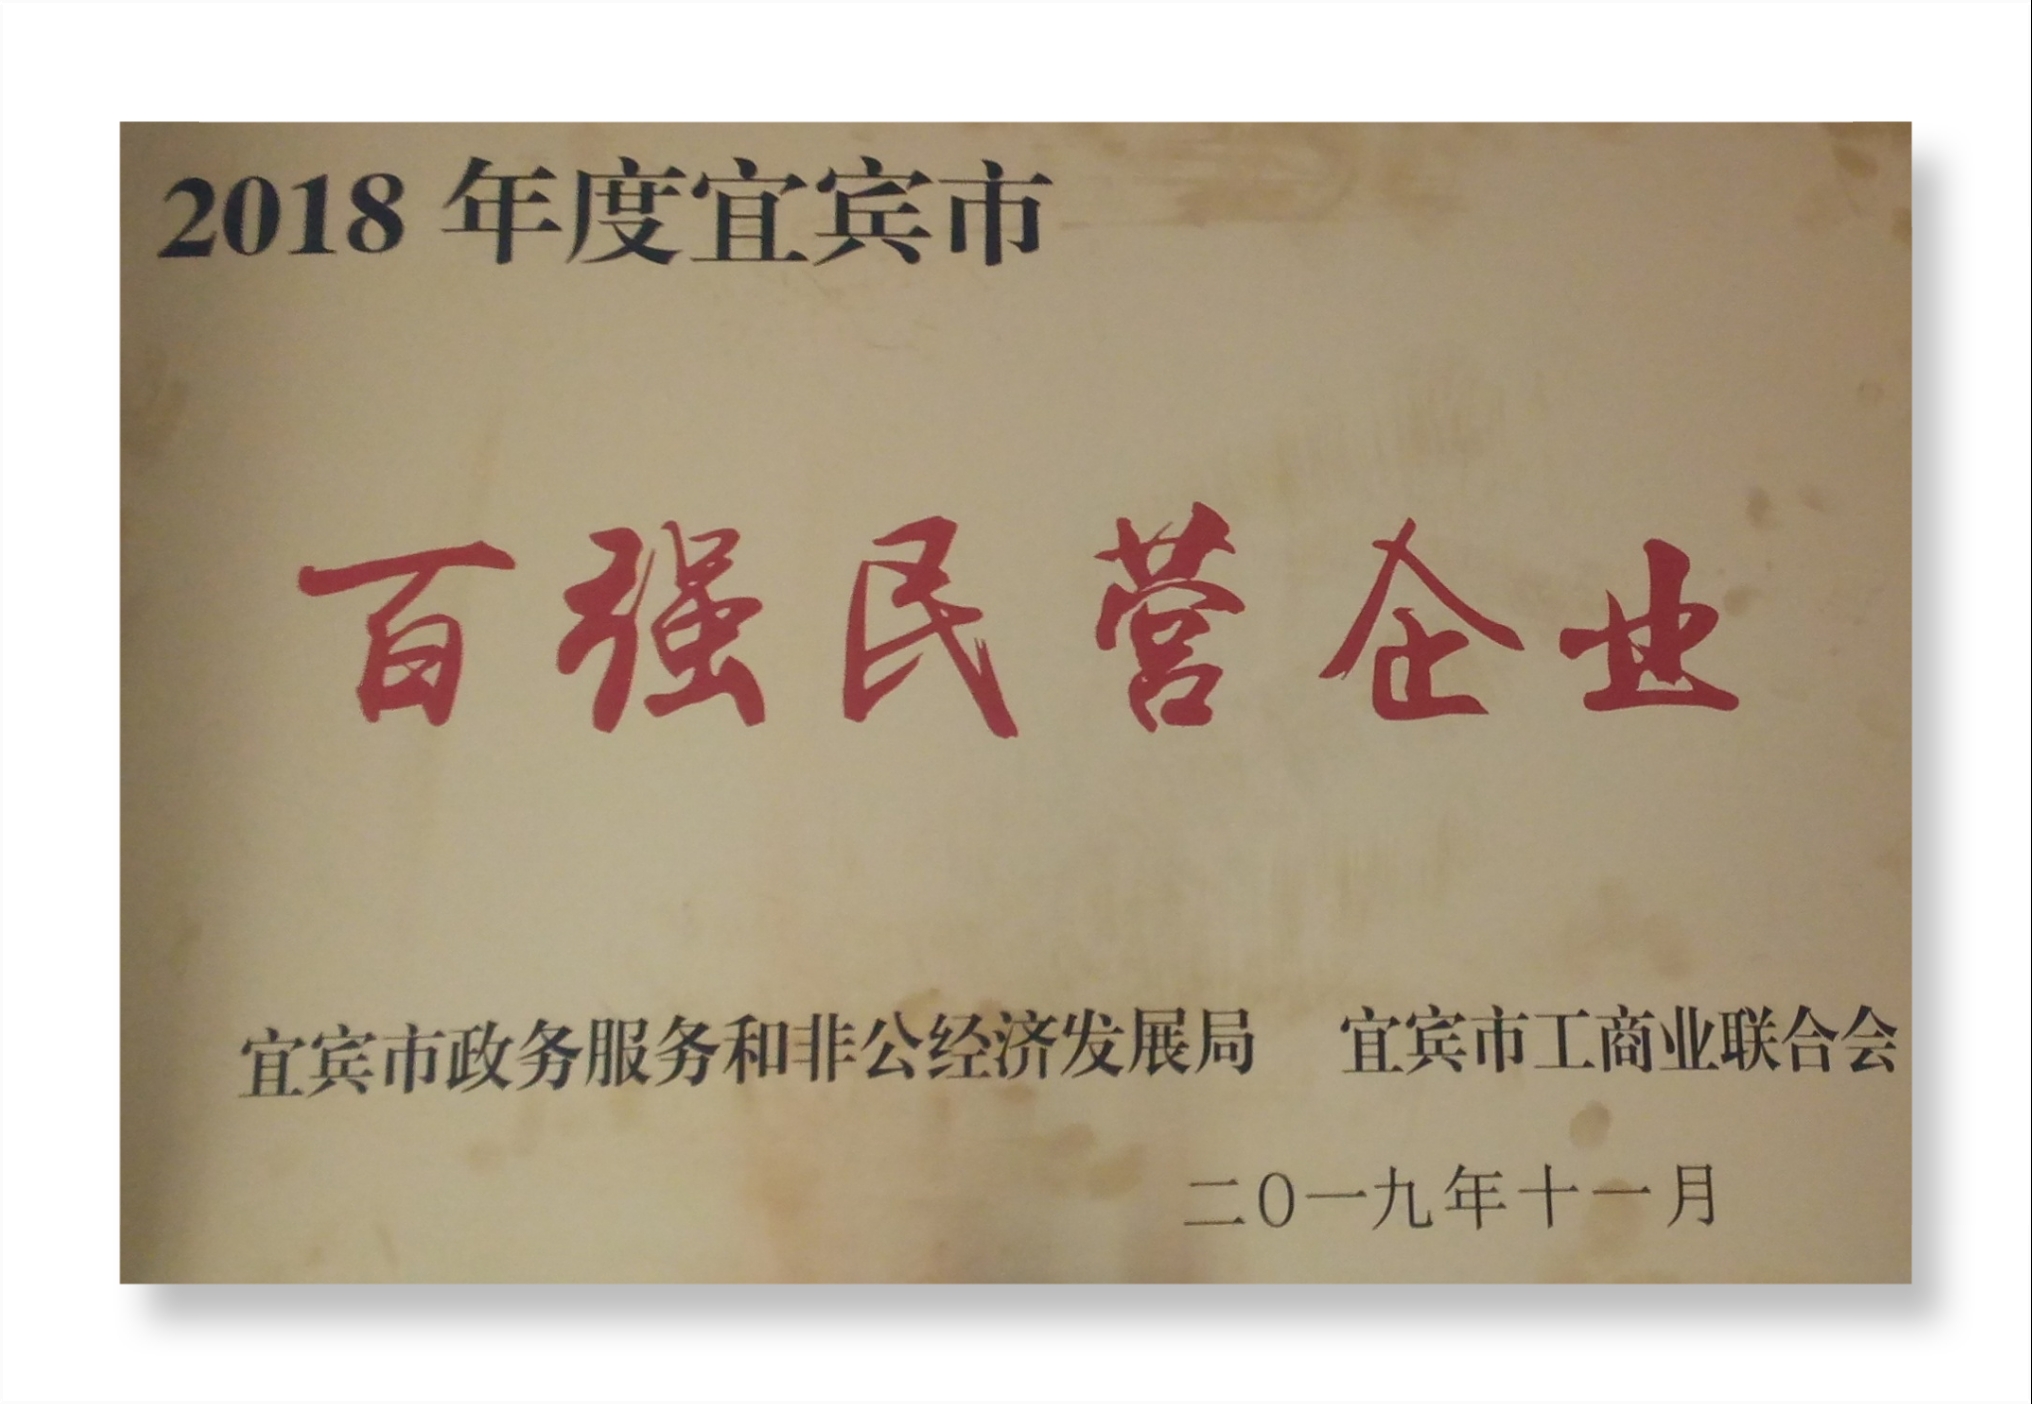 2018 年度宜宾市
百强民营企业
宜宾市政务服务和非公经济发展局 宜宾市工商业联合会
二〇一九年十一月